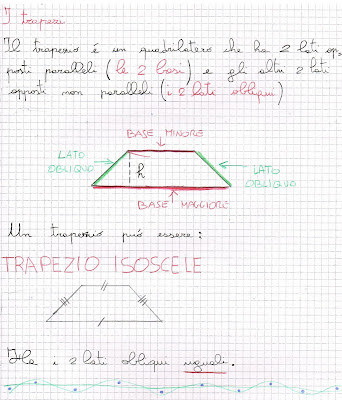 I trapezi
Il trapezio é un quadrilatero che ha 2 lati op=
posti paralleli (le 2 basi) e gli altri 2 lati
opposti non paralleli (i 2 lati obliqui)
BASE MINORE
LATO OBLIQUO
h
LATO OBLIQUO
BASE MAGGIORE
Un trapezio può essere:
TRAPEZIO ISOSCELE
Ha i 2 lati obliqui uguali.